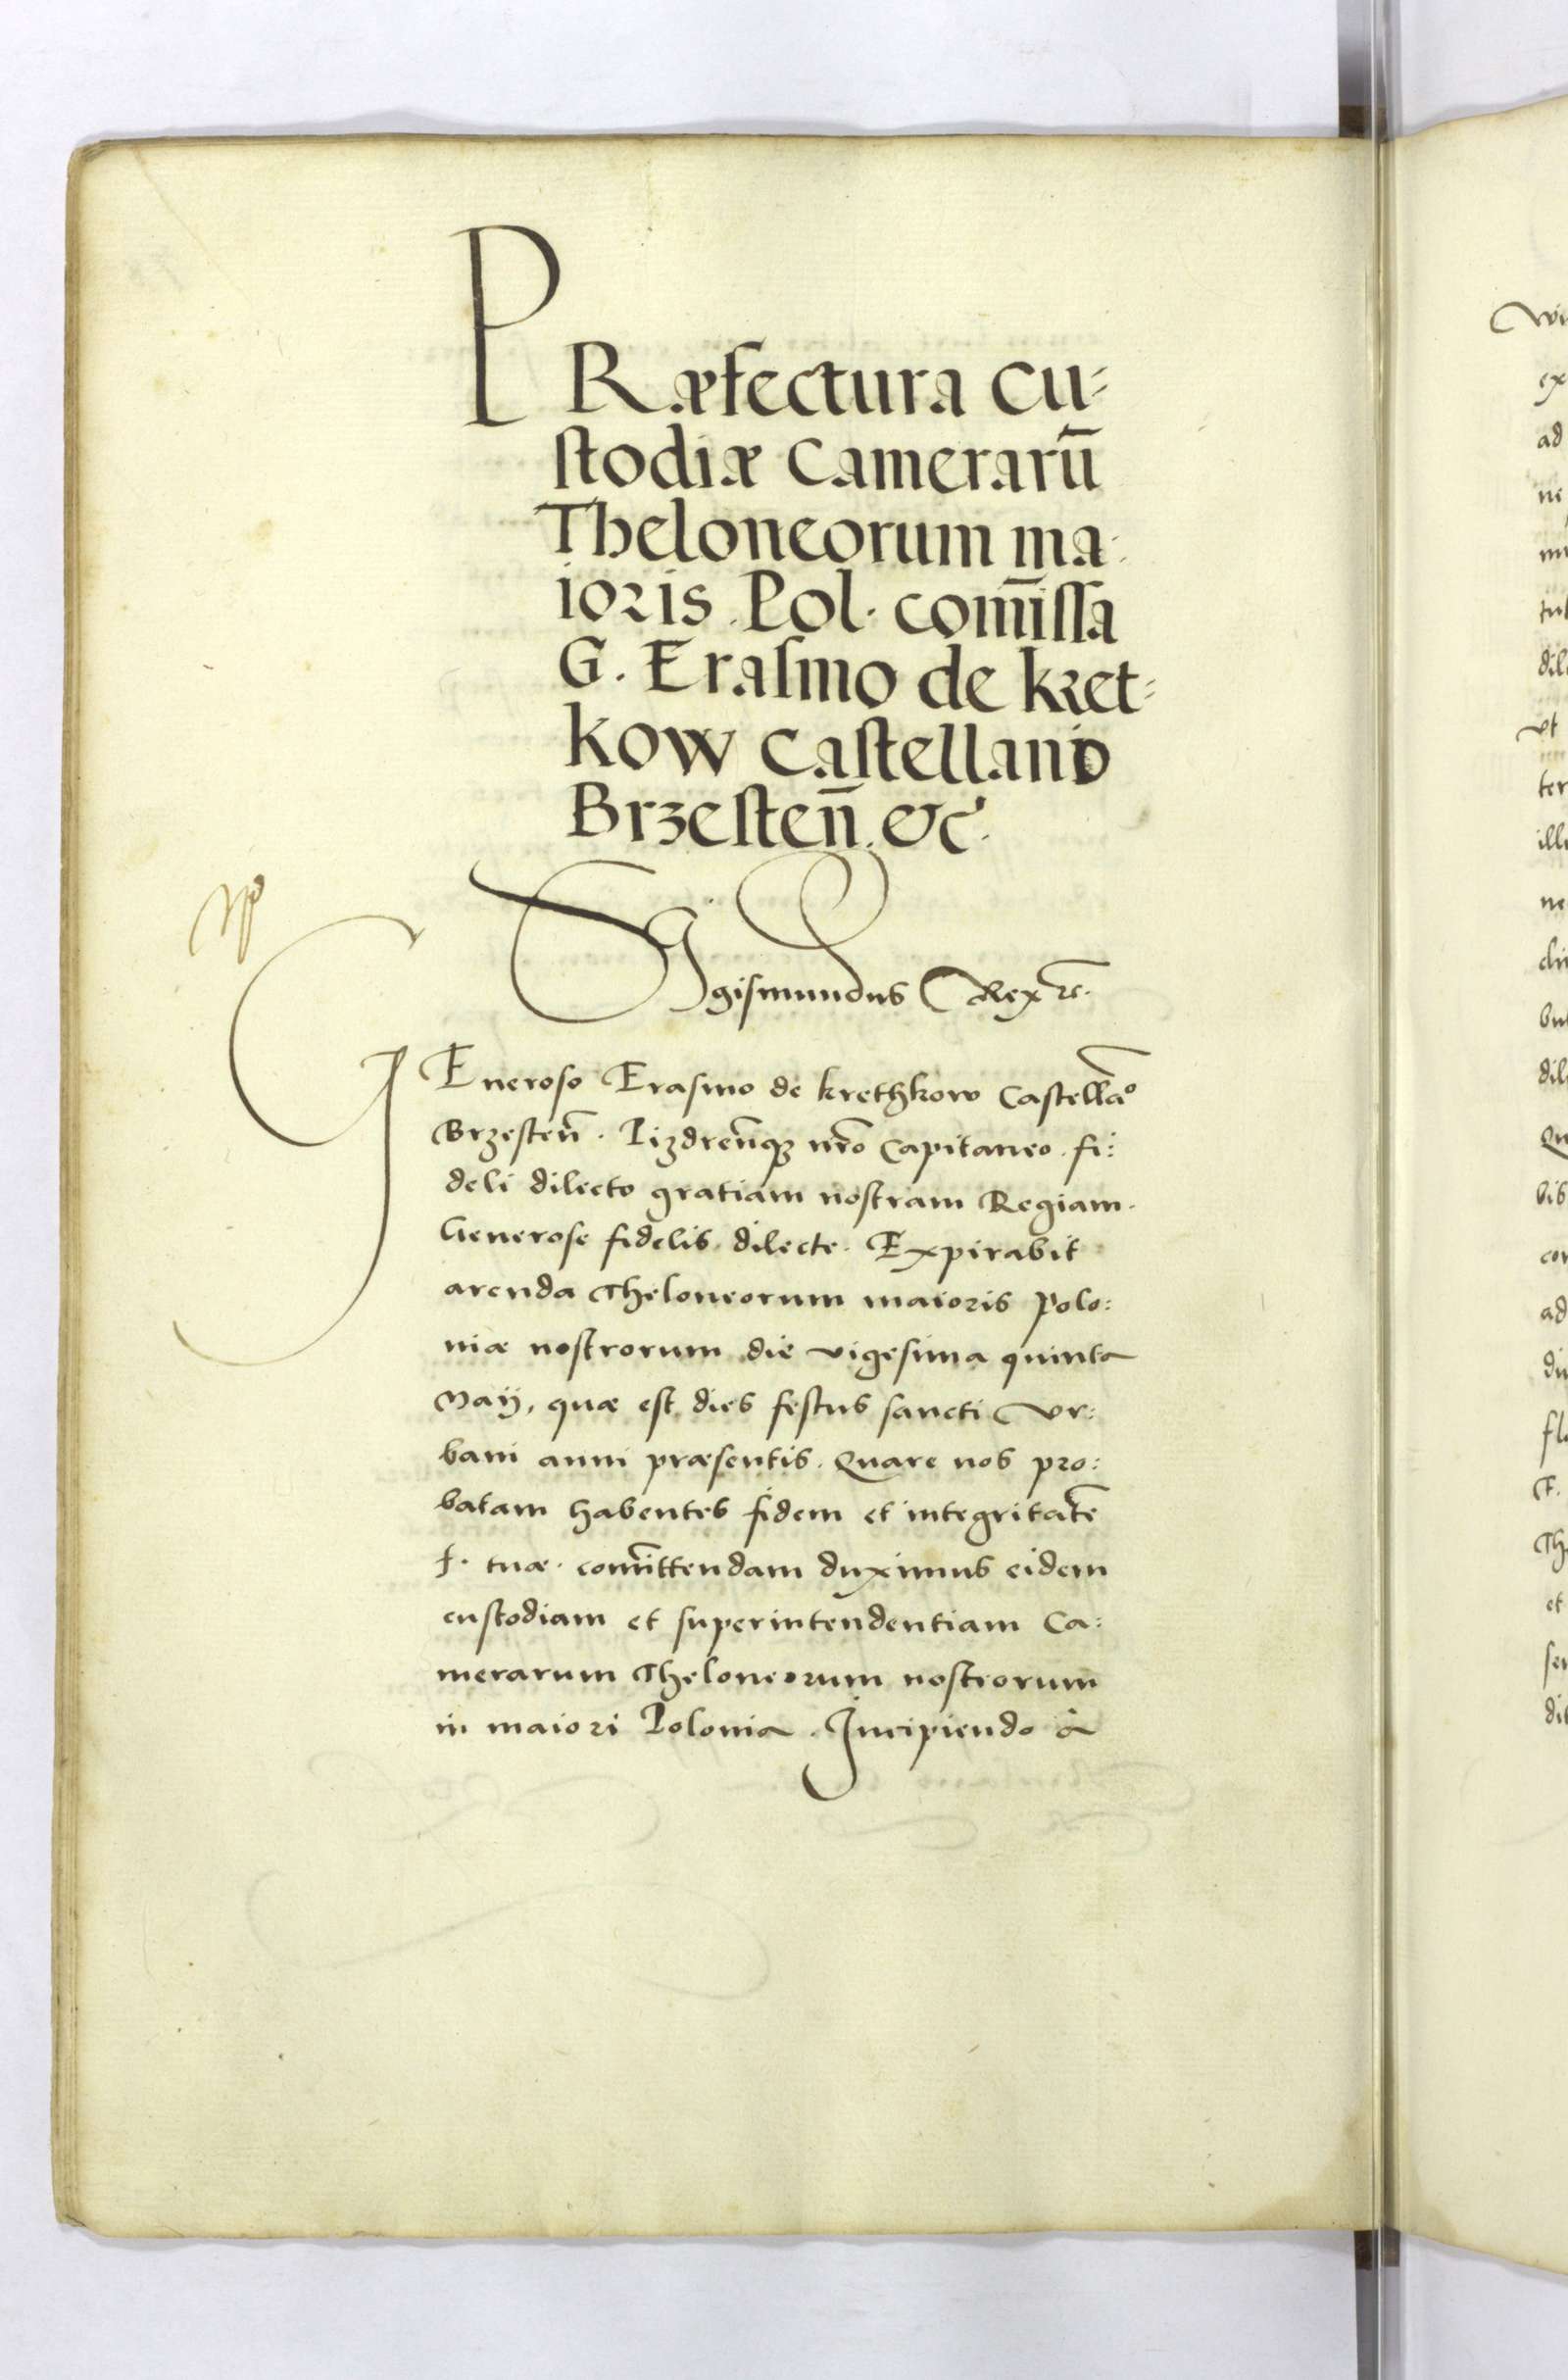 PRæfectura cu=
ſtodiæ Camerarū
Theloneorum ma
ioris Pol. com̄iſſa
G. Eraſmo de kret=
kow Caſtellano
Brzeſten̄. etc.
Sigismundus Rex etc.
GEneroso Erasmo de krethkow Castellāo
Brzesten̄. Pizdren̄q3 nr̄o Capitaneo. fi:
deli dilecto gratiam nostram Regiam.
Generose fidelis dilecte. Expirabit
arenda Theloneorum maioris Polo:
niæ nostrorum die vigesima quinta
Maij, quæ est dies festus sancti Vr:
bani anni præsentis. Quare nos pro:
batam habentes fidem et integritatē
f. tuæ. com̄ittendam duximus eidem
custodiam et superintendentiam Ca:
merarum Theloneorum nostrorum
in maiori Polonia. Incipiendo à